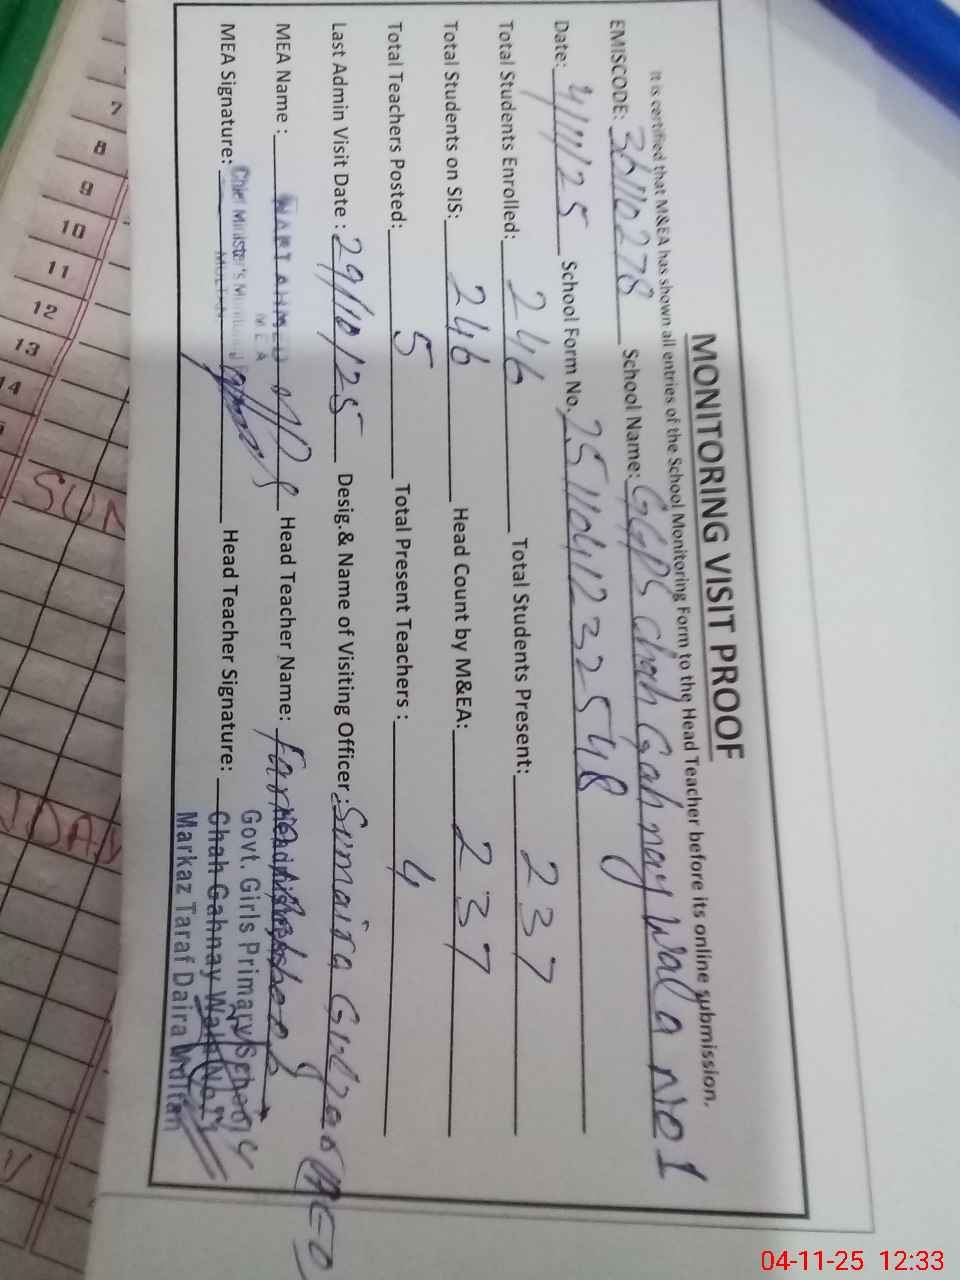 MONITORING VISIT PROOF
It is certified that M&EA has shown all entries of the School Monitoring Form to the Head Teacher before its online submission.
EMISCODE: 36110278 School Name: GGPS Chah Gahnay Wala No 1
Date: 4/11/25 School Form No. 2511041232548
Total Students Enrolled: 246 Total Students Present: 237
Total Students on SIS: 246 Head Count by M&EA: 237
Total Teachers Posted: 5 Total Present Teachers : 4
Last Admin Visit Date : 29/10/25 Desig.& Name of Visiting Officer: Sumaira Gulzar (AEO
MEA Name : AHMED Head Teacher Name:
MEA
Govt. Girls Primary School
MEA Signature: Chief Minister's MULTAN Head Teacher Signature: Chah Gahnay Wala No.1
Markaz Taraf Daira Multan
7
8
9
10
11
12
13
14
SUN
NDAY
04-11-25 12:33